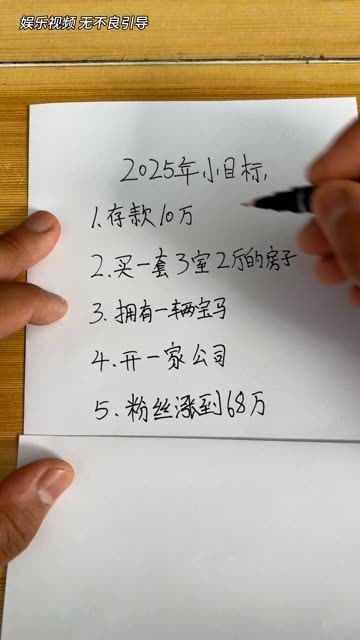 娱乐视频 无不良引导
2025年小目标,
1.存款10万
2.买一套3室2厅的房子
3.拥有一辆宝马
4.开一家公司
5.粉丝涨到68万